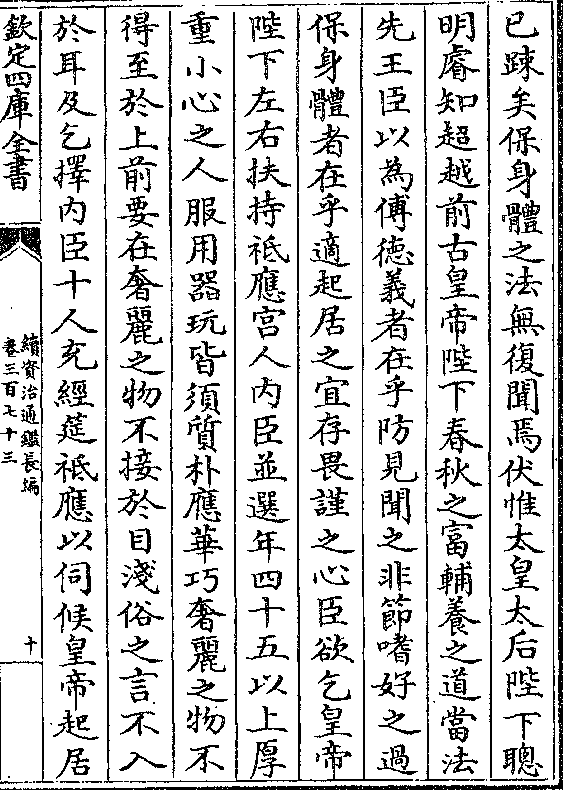 已踈矣保身體之法無復聞焉伏惟太皇太后陛下聰
明睿知超越前古皇帝陛下春秋之富輔養之道當法
先王臣以為傅德義者在乎防見聞之非節嗜好之過
保身體者在乎適起居之宜存畏謹之心臣欲乞皇帝
陛下左右扶持祗應宫人内臣並選年四十五以上厚
重小心之人服用器玩皆須質朴應華巧奢麗之物不
得至於上前要在奢麗之物不接於目淺俗之言不入
於耳及乞擇内臣十人充經筵祗應以伺候皇帝起居
欽定四庫全書
續資治通鑑長編
卷三百七十三
十